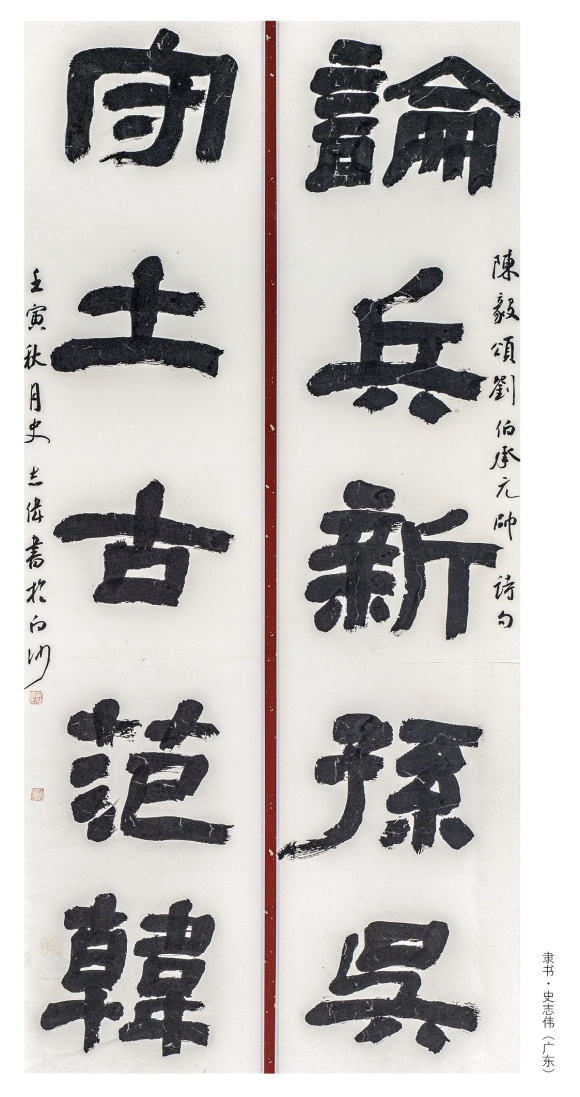 陳毅頌劉伯承元帥詩句
論兵新孫吳
守土古范韓
壬寅秋月史志偉書於白沙
隶书·史志伟（广东）